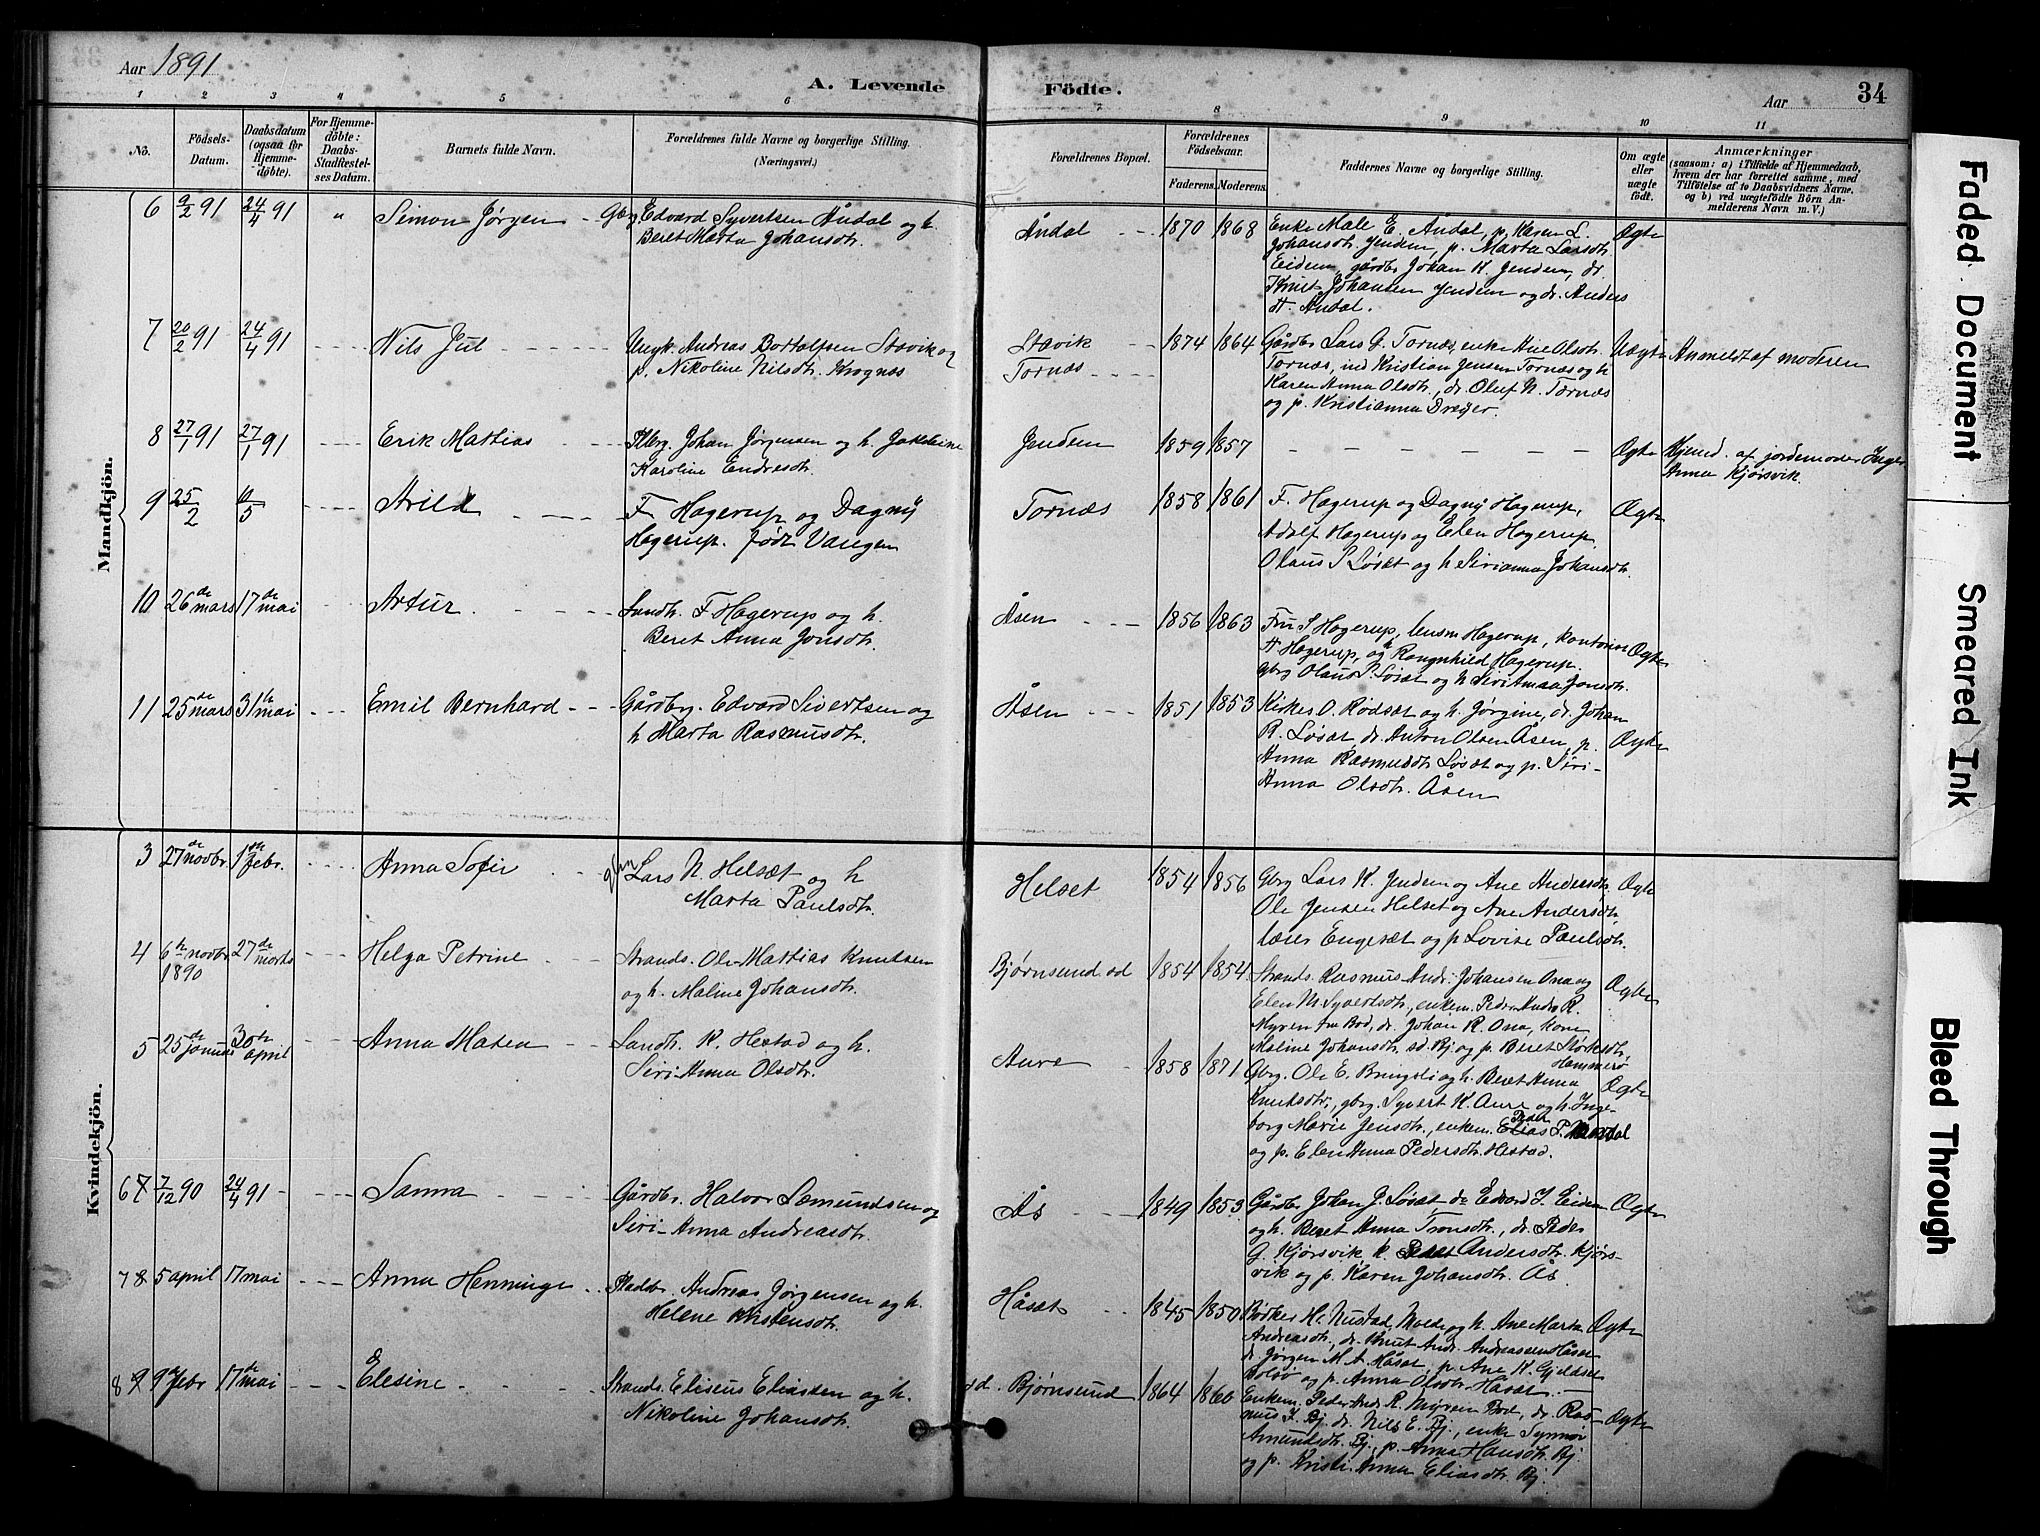 Aar 1891
A. Levende Födte.
Aar
34
1 2 3 4 5 6 7 8 9 10 11
No.
Födsels-Datum.
Daabsdatum (ogsaa for Hjemmedöbte).
For Hjemmedöbte: Daabs-Stadfæstelses Datum.
Barnets fulde Navn.
Forældrenes fulde Navne og borgerlige Stilling.
(Næringsvei.)
Forældrenes Bopæl.
Forældrenes Födselsaar.
Faderens. Moderens.
Faddernes Navne og borgerlige Stilling.
Om ægte eller uægte födt.
Anmærkninger
(saasom: a) i Tilfælde af Hjemmedaab, hvem der har forrettet samme, med Tilföielse af to Daabsvidners Navne, og b) ved uægtefödte Börn Anmelderens Navn m. V.)
Mandkjön.
6 9/2 91 24/4 91 " Simon Jørgen - Gbrg Edvard Syvertsen Åndal og h.
Beret Marta Johansdtr.
Åndal 1870 1868
Enke Male E. Åndal, p. Karen L.
Johansdtr. Jendem, p. Marta Larsdtr.
Eidem, gårdbr Johan K. Jendem, dr.
Knut Johansen Jendem og dr. Anders
A. Åndal.
Ægte
7 20/2 91 24/4 91 Nils Jul
Ungk. Andreas Bortolfsen Stavik og
p. Nikoline Nilsdtr. Krognæs
Stavik
Tornæs
1874 1864
Gårdbr Lars G. Tornæs, enke Ane Olsdtr.
Tornæs, ind Kristian Jensen Tornæs og h
Karen Anna Olsdtr., dr. Oluf N. Tornæs
og p. Kristianna Dreyer.
Uægte Anmeldt af moderen
8 27/1 91 27/1 91 Erik Mattias
Plbrg. Johan Jørgensen og h. Jakobine
Karoline Endresdtr.
Jendem 1859 1857
Ægte Hjemd. af jordemoder Inger
Anna Kjørsvik.
9 25/2 6/5 Arild
F. Hagerup og Dagny
Hagerup. født Vangen
Tornæs 1858 1861
F. Hagerup og Dagny Hagerup,
Adolf Hagerup og Elen Hagerup,
Olaus S Løset og h Sirianna Johansdtr.
Ægte
10 26de mars 17de mai Artur
Landh. F Hagerup og h.
Beret Anna Jonsdtr.
Åsen 1856 1863
Fru S Hagerup, lensm Hagerup, kontorist
A Hagerup, og h Rangnhild Hagerup.
gbrg Olaus S. Løset og h Siri Anna Jonsdtr.
Ægte
11 25de mars 31te mai Emil Bernhard
Gårdbg. Edvard Sivertsen og
h Marta Rasmusdtr.
Åsen 1851 1853
Kirkes O. Rødsæt og h. Jørgine, dr. Johan
R. Løsæt, dr. Anton Olsen Åsen, p.
Anna Rasmusdtr. Løsæt og p. Siri-
Anna Olsdtr. Åsen
Ægte
Kvindekjön.
3 27de novbr. 1ste febr. Anna Sofie
gbr Lars N. Helsæt og h
Marta Paulsdtr.
Helset 1854 1856
Gbrg Lars K. Jendem og Ane Andersdtr.
Ole Jensen Helset og Ane Andersdtr,
lærer Engesæt og p Lovise Paulsdtr.
Ægte
4 6te novbr. 1890 27de marts Helga Petrine
Strands. Ole Mattias Knutsen
og h. Maline Johansdtr.
Bjørnsund sd 1854 1854
Strands. Rasmus Andr. Johansen Ona og
Elen M. Syvertsdtr., enkem. Peder Andr R.
Myren fra Bod, dr. Johan R. Ona, kone
Maline Johansdtr. sd. Bj. og p. Beret Størksdtr,
Hammerø
Ægte
5 25de januar 30te april Anna Matea
Landh. K. Hestad og h.
Siri-Anna Olsdtr.
Aure 1858 1871
Gbrg. Ole E. Bringsli og h. Beret Anna
Knutsdtr., gbrg. Syvert K. Aure og h. Inge-
borg Marie Jensdtr., enkem. Peder
og p. Elen Anna Pedersdtr. Hestad.
Ægte
6 7 7/12 90 24/4 91 Sanna
Gårdbr. Halvor Sæmundsen og
Siri-Anna Andreasdtr.
Ås 1849 1853
Gårdbr. Johan J. Løsæt, dr Edvard J. Eidem
og h. Beret Anna Tronsdtr., dr. Peder
G. Kjørsvik, k. Andersdtr. Kjørs-
vik og p. Karen Johansdtr. Ås.
Ægte
7 8 5 april 17 mai Anna Henninge
Pladsbr. Andreas Jørgensen og h.
Helene Kristensdtr.
Håsæt 1845 1850
Bødker H. Nustad, Molde og h. Ane Marta
Andreasdtr., dr. Knut Andr. Andreassen Håsæt
dr. Jørgen M. A. Håsæt, p. Ane K. Gjeldsæt
Bolsø og p. Anna Olsdtr. Håsæt.
Ægte
8 9 9de febr 17de mai Elesine
Strands. Eliseus Eliassen og h.
Nikoline Johansdtr.
sd. Bjørnsund 1864 1860
Enkem. Peder Andr. R. Myren Bod, dr. Ras-
mus J. Bj. dr. Nils E. Bj., enke Synnøv
Amundsdtr. Bj., p. Anna Hansdtr. Bj
og p. Kristi Anna Eliasdtr. Bj.
Ægte
Faded Document
Smeared Ink
Bleed Through